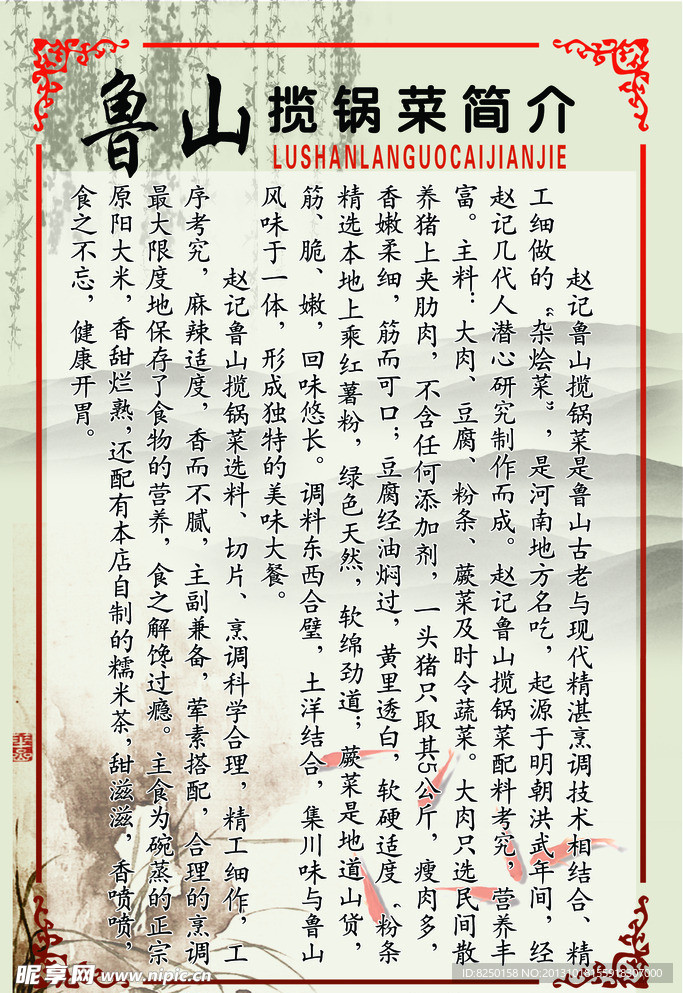 鲁山揽锅菜简介
LUSHANLANGUOCAIJIANJIE
赵记鲁山揽锅菜是鲁山古老与现代精湛烹调技术相结合、精
工细做的“杂烩菜”，是河南地方名吃，起源于明朝洪武年间，经
赵记几代人潜心研究制作而成。赵记鲁山揽锅菜配料考究，营养丰
富。主料：大肉、豆腐、粉条、蕨菜及时令蔬菜。大肉只选民间散
养猪上夹肋肉，不含任何添加剂，一头猪只取其5公斤，瘦肉多，
香嫩柔细，筋而可口；豆腐经油焖过，黄里透白，软硬适度。粉条
精选本地上乘红薯粉，绿色天然，软绵劲道；蕨菜是地道山货，
筋、脆、嫩，回味悠长。调料东西合璧，土洋结合，集川味与鲁山
风味于一体，形成独特的美味大餐。
赵记鲁山揽锅菜选料、切片、烹调科学合理，精工细作，工
序考究，麻辣适度，香而不腻，主副兼备，荤素搭配，合理的烹调
最大限度地保存了食物的营养，食之解馋过瘾。主食为碗蒸的正宗
原阳大米，香甜烂熟，还配有本店自制的糯米茶，甜滋滋，香喷喷，
食之不忘，健康开胃。
昵享网 www.nipic.cn
ID:8250158 NO:20131018155918507000